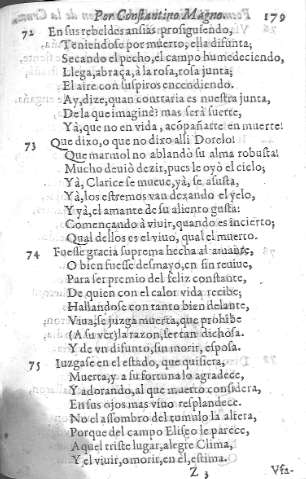 Por Constantino Magno. 179
72 En sus rebeldes ansias prosiguiendo,
Teniendose por muerto, ella difunta,
Secando el pecho, el campo humedeciendo,
Llega, abraça, à la rosa, rosa junta;
El aire con suspiros encendiendo.
Ay, dize, quan contraria es nuestra junta,
De la que imaginè! mas serà fuerte,
Yà, que no en vida, acõpañarte en muerte!
73 Que dixo, o que no dixo alli Dorelo!
Que marmol no ablandò su alma robusta!
Mucho deviò dezir, pues le oyò el cielo;
Yà, Clarice se mueve, yà, se asusta,
Yà, los estremos van dexando el yelo,
Y yà, el amante de su aliento gusta:
Començando à vivir, quando es incierto;
Qual dellos es el vivo, qual el muerto.
74 Fuesse gracia suprema hecha al amante,
O bien fuesse desmayo, en fin revive,
Para ser premio del feliz constante,
De quien con el calor vida recibe;
Hallandose con tanto bien delante,
Viva, se juzga muerta, que prohibe
(A su ver) la razon, ser tan dichosa.
Y de vn difunto, sin morir, esposa.
75 Iuzgase en el estado, que quisiera,
Muerta, y a su fortuna lo agradece,
Y adorando, al que muerto considera,
En sus ojos mas vivo resplandece.
No el assombro del tumulo la altera,
Porque del campo Eliseo le parece,
Aquel triste lugar, alegre Clima,
Y el vivir, o morir, en el, estima.
Z 3 Vfa-